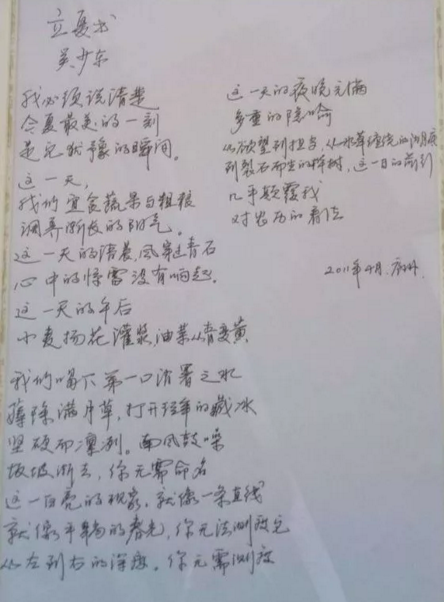 立夏书
吴少东
我必须说清楚
今夏最美的一刻
是它犹豫的瞬间。
这一天，
我们宜食蔬果与粗粮
调养渐长的阳气。
这一天的清晨，风穿过青石
心中的惊雷没有响起。
这一天的午后
小麦扬花灌浆，油菜从青变黄
我们喝下第一口消暑之水
薅除满月草，打开经年的藏冰
坚硬而凛冽。南风鼓噪
渐去，你无需命名
这一白亮的现象，就像一条直线
就像平躺的春光，你无法测度它
从左到右的深度。你无需测度
这一天的夜晚充满
多重的隐喻
从欲望到担当，从水草缠绕的
到裂石而生的榉树，这一日的荷引
几乎颠覆我
对农历的看法
2011年4月.